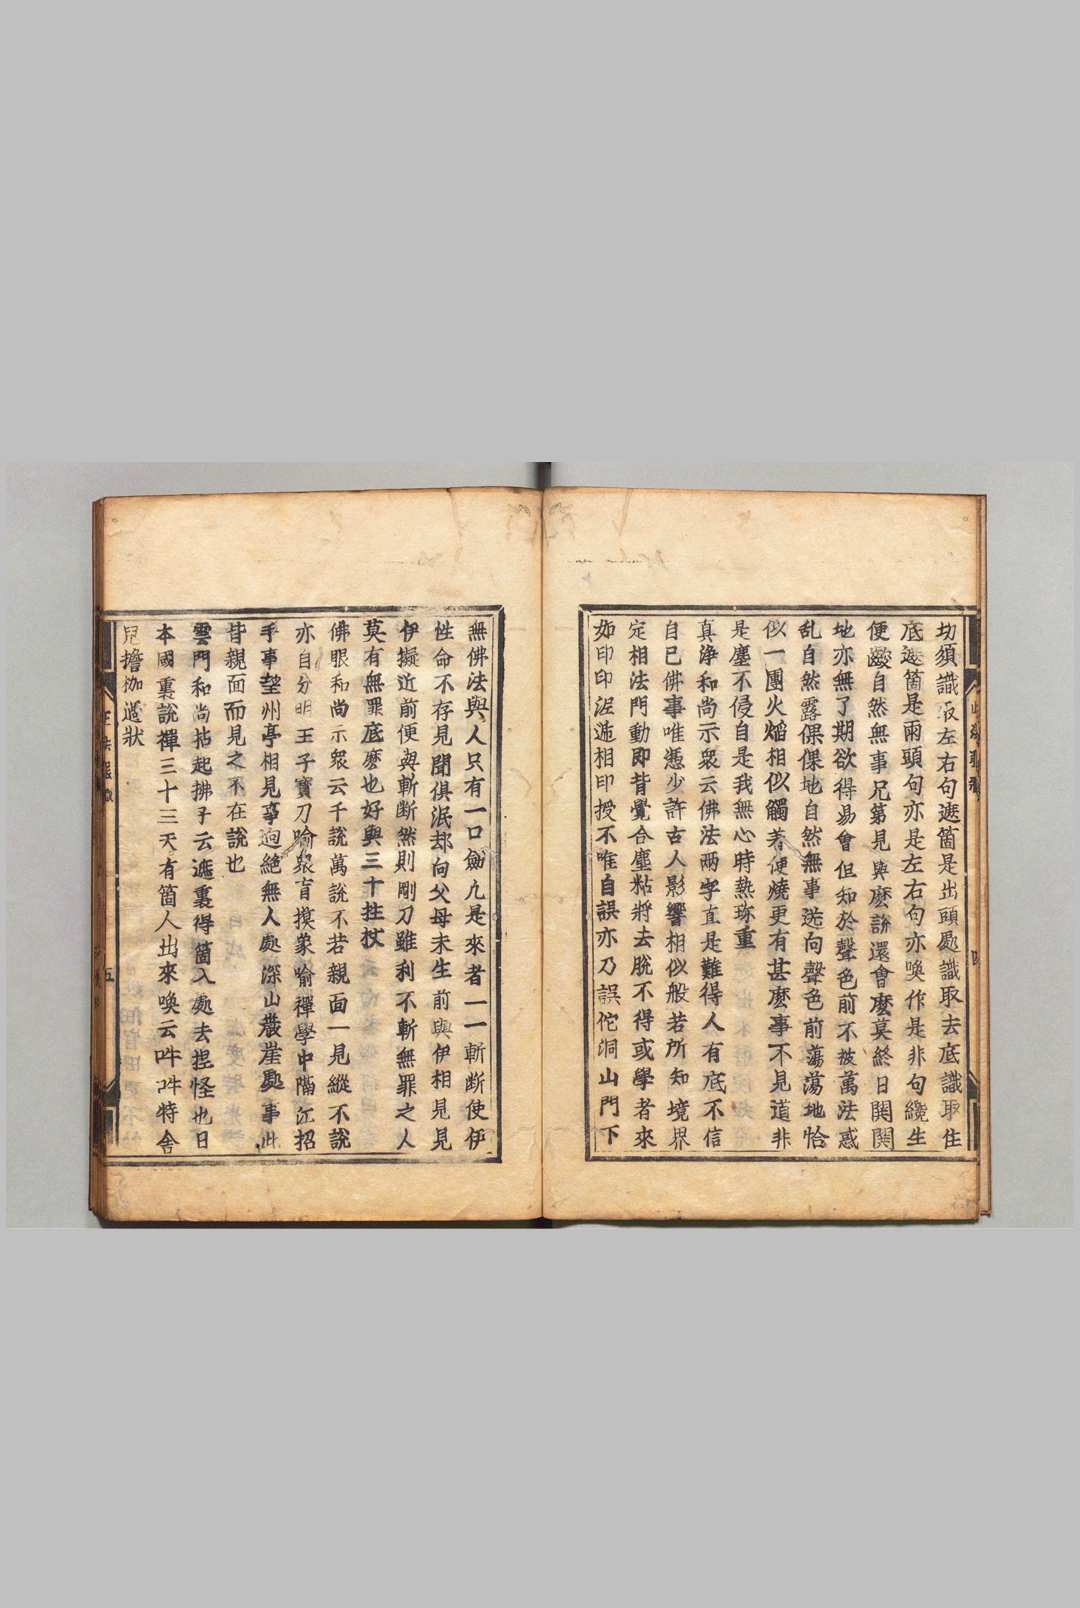 切須識取左右句遮箇是出頭處識取去底識取住
底遮箇是兩頭句亦是左右句亦喚作是非句纔生
便齩自然無事兄弟見與麼說還會麼莫終日閧閧
地亦無了期欲得易會但知於聲色前不被萬法惑
乱自然露倮倮地自然無事送向聲色前蕩蕩地恰
似一團火焰相似觸著便燒更有甚麼事不見道非
是塵不侵自是我無心時熱珎重
真浄和尚示衆云佛法兩字直是難得人有底不信
自己佛事唯憑少許古人影響相似般若所知境界
定相法門動即背覺合塵粘將去脫不得或學者來
如印印泥遞相印授不唯自誤亦乃誤佗洞山門下
無佛法與人只有一口劒凡是來者一一斬断使伊
性命不存見聞俱泯却向父母未生前與伊相見見
伊擬近前便與斬断然則剛刀雖利不斬無罪之人
莫有無罪底麼也好與三十拄杖
佛眼和尚示衆云千說萬說不若親面一見縱不說
亦自分明王子寶刀喻衆盲摸象喻禪學中隔江招
手事望州亭相見事迥絕無人處深山巖崖處事此
皆親面而見之不在說也
雲門和尚拈起拂子云遮裏得箇入處去捏怪也日
本國裏說禪三十三天有箇人出來喚云吽吽特舍
兒擔枷過狀
正法眼藏
五
四